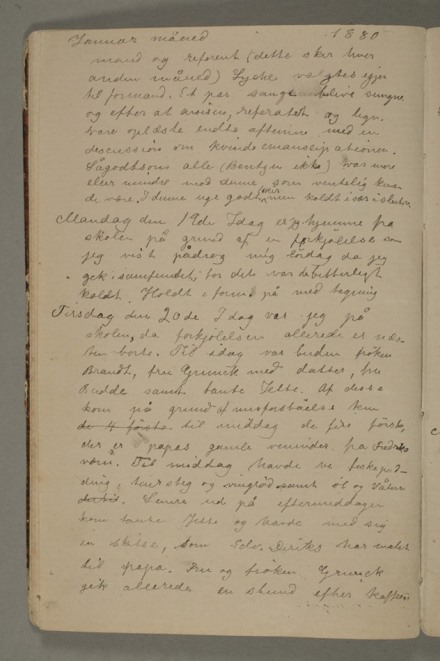 Januar måned 1880
mand og referent (dette sker hver
anden måned) Lyche valgtes igjen
til formand. Et par sange blive sungne
og efter at avisen, referatet og lign.
vare oplæste endte aftenen med en
discussion om kvindeemancipationen.
Sågodtsom alle (Bentzen ikke) var mere
eller mindre mod denne, som ventelig kun-
de være. I denne uge godt, men koldt især i slutten
Mandag den 19de Idag er jeg hjemme fra
skolen på grund af en forkjølelse som
jeg vist pådrog mig lördag da jeg
gik i samfundet; for det var da bitterligt
koldt. Holdt i form. på med tegning
Tirsdag den 20de I dag var jeg på
skolen, da forkjölelsen allerede er næs-
ten borte. Til idag var buden fröken
Brandt, fru med datter, fru
Budde samt tante Jette. Af disse
kom på grund af misforståelse kun
de 4 förste til middag de fire förste,
der er papas gamle veninder fra Fredriks
værn. Til middag havde vi fiskepud-
ding, og samt öl og
Senere ud på eftermiddagen
kom tante Jette og havde med sig
en skitse, som Diriks har malet
til papa. Fru og fröken
gik allerede en stund efter kaffeen